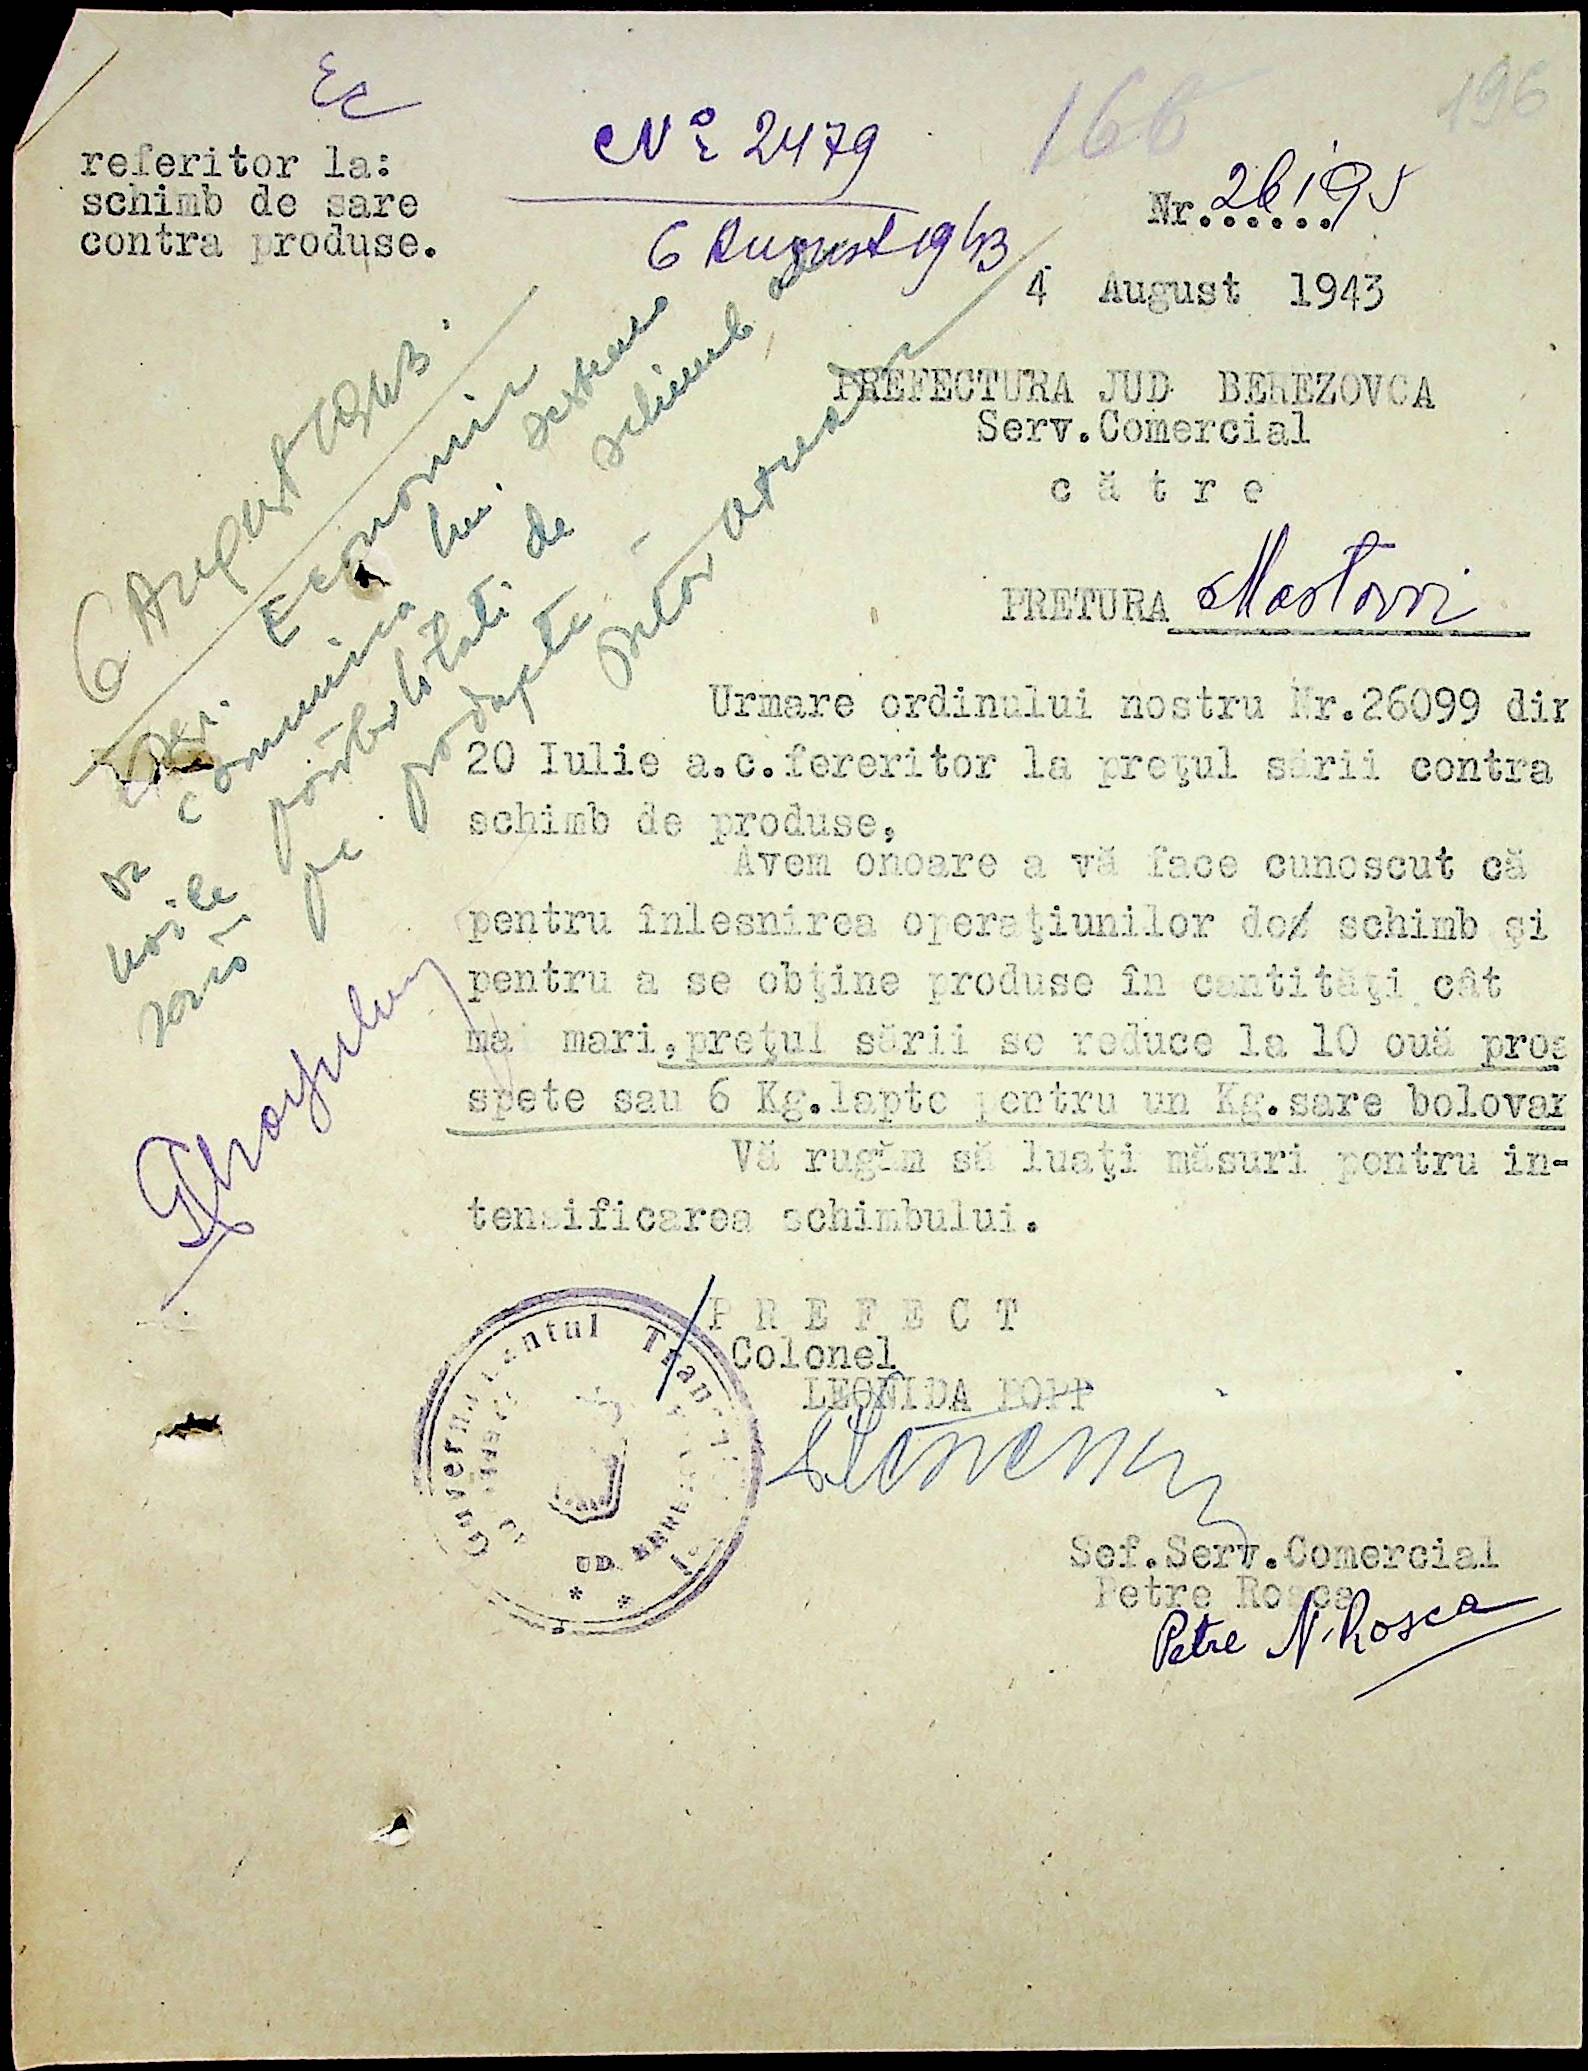 Ec
166
196
referitor la:
schimb de sare
contra produse.
No 2479
6 August 1943
Nr......26195
4 August 1943
PREFECTURA JUD BEREZOVCA
Serv.Comercial
c ă t r e
PRETURA Mostovoi
6 August 1943.
Economic
comunica
noile posibilitati de schimb
sare pe produse
Urmare ordinului nostru Nr.26099 din
20 Iulie a.c.fereritor la preţul sării contra
schimb de produse,
Avem onoare a vă face cunoscut că
pentru înlesnirea operaţiunilor de schimb şi
pentru a se obţine produse în cantităţi cât
mai mari,preţul sării se reduce la 10 ouă proa
spete sau 6 Kg.lapte pentru un Kg.sare bolovan
Vă rugăm să luaţi măsuri pentru in-
tensificarea schimbului.
P R E F E C T
Colonel
LEONIDA POPP
Guvernamantul Trans
UD. BERE
Sef.Serv.Comercial
Petre Rosca
Petre N. Rosca